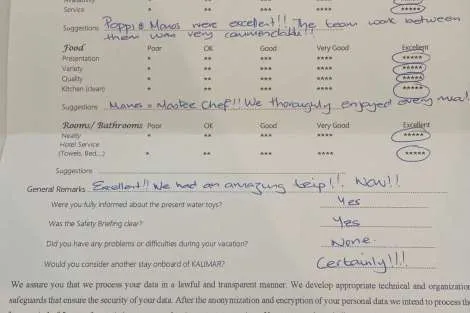 Service * ** *** **** *****
Suggestions Poppi & Manos were excellent!! The team work between
them was very commendable!!
Food Poor OK Good Very Good Excellent
Presentation * ** *** **** *****
Variety * ** *** **** *****
Quality * ** *** **** *****
Kitchen (clean) * ** *** **** *****
Suggestions Manos = Master Chef!! We thoroughly enjoyed every meal
Rooms/ Bathrooms Poor OK Good Very Good Excellent
Neatly * ** *** **** *****
Hotel Service
(Towels, Bed,...) * ** *** **** *****
Suggestions
General Remarks Excellent!! We had an amazing trip!! Wow!!
Were you fully informed about the present water toys? Yes
Was the Safety Briefing clear? Yes
Did you have any problems or difficulties during your vacation? None.
Would you consider another stay onboard of KALIMAR? Certainly!!!
We assure you that we process your data in a lawful and transparent manner. We develop appropriate technical and organization
safeguards that ensure the security of your data. After the anonymization and encryption of your personal data we intend to process the